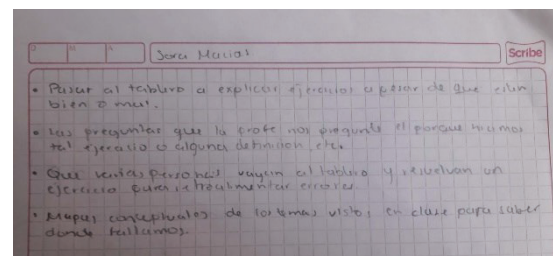 D M A Sara Macias Scribe
• Pasar al tablero a explicar ejercicios apesar de que esten
bien o mal.
• Las preguntas que la profe nos pregunta el porque hicimos
tal ejercicio o alguna definicion, etc.
• Que varias personas vayan al tablero y resuelvan un
ejercicio para retroalimentar errores
• Mapas conceptuales de los temas visto, en clase para saber
donde fallamos.